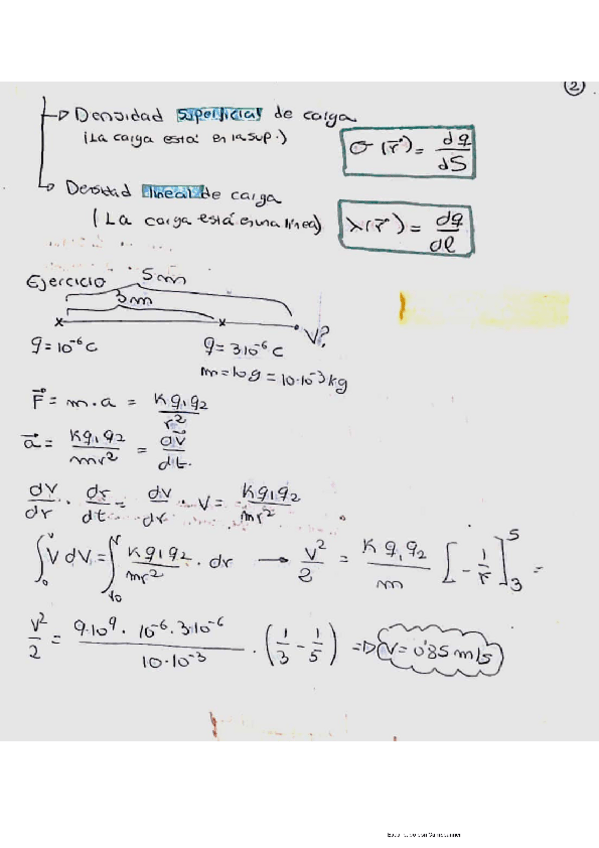 2
→ Densidad superficial de carga
(La carga está en la sup.)
σ(r⃗) = dq/dS
→ Densidad lineal de carga
(La carga está en una línea)
λ(r⃗) = dq/dl
Ejercicio
5m
3m
V?
q = 10⁻⁶ C
q = 3·10⁻⁶ C
m = 10g = 10·10⁻³ kg
F⃗ = m·a = Kq₁q₂/r²
a⃗ = Kq₁q₂/mr² = dv⃗/dt.
dV/dr · dr/dt = dv/dr · V = Kq₁q₂/mr²
∫₀ᵛ V dV = ∫ᵣ₀ʳ Kq₁q₂/mr² · dr → V²/2 = Kq₁q₂/m [-1/r]₃⁵ =
V²/2 = 9·10⁹ · 10⁻⁶·3·10⁻⁶/10·10⁻³ · (1/3 - 1/5) ⇒ V = 0'85 m/s